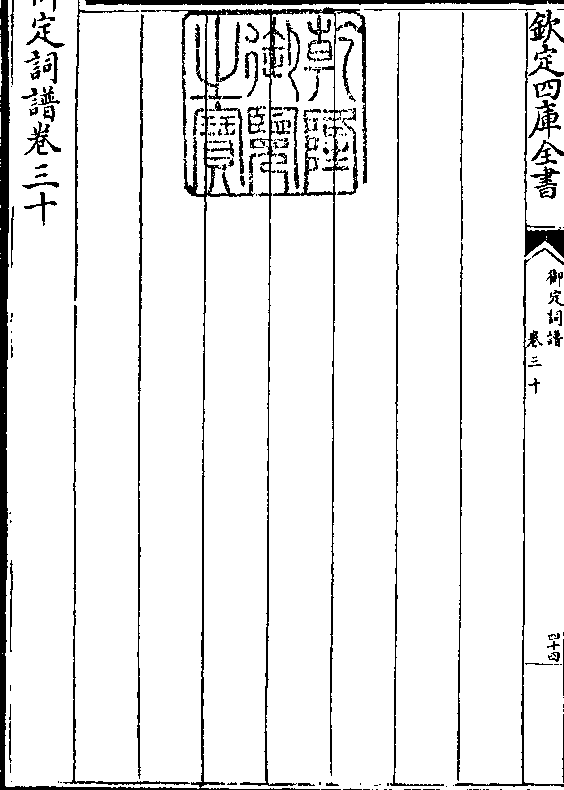 欽定四庫全書
御定詞譜
卷三十
四十四
乾隆
御覽
之寶
御定詞譜卷三十